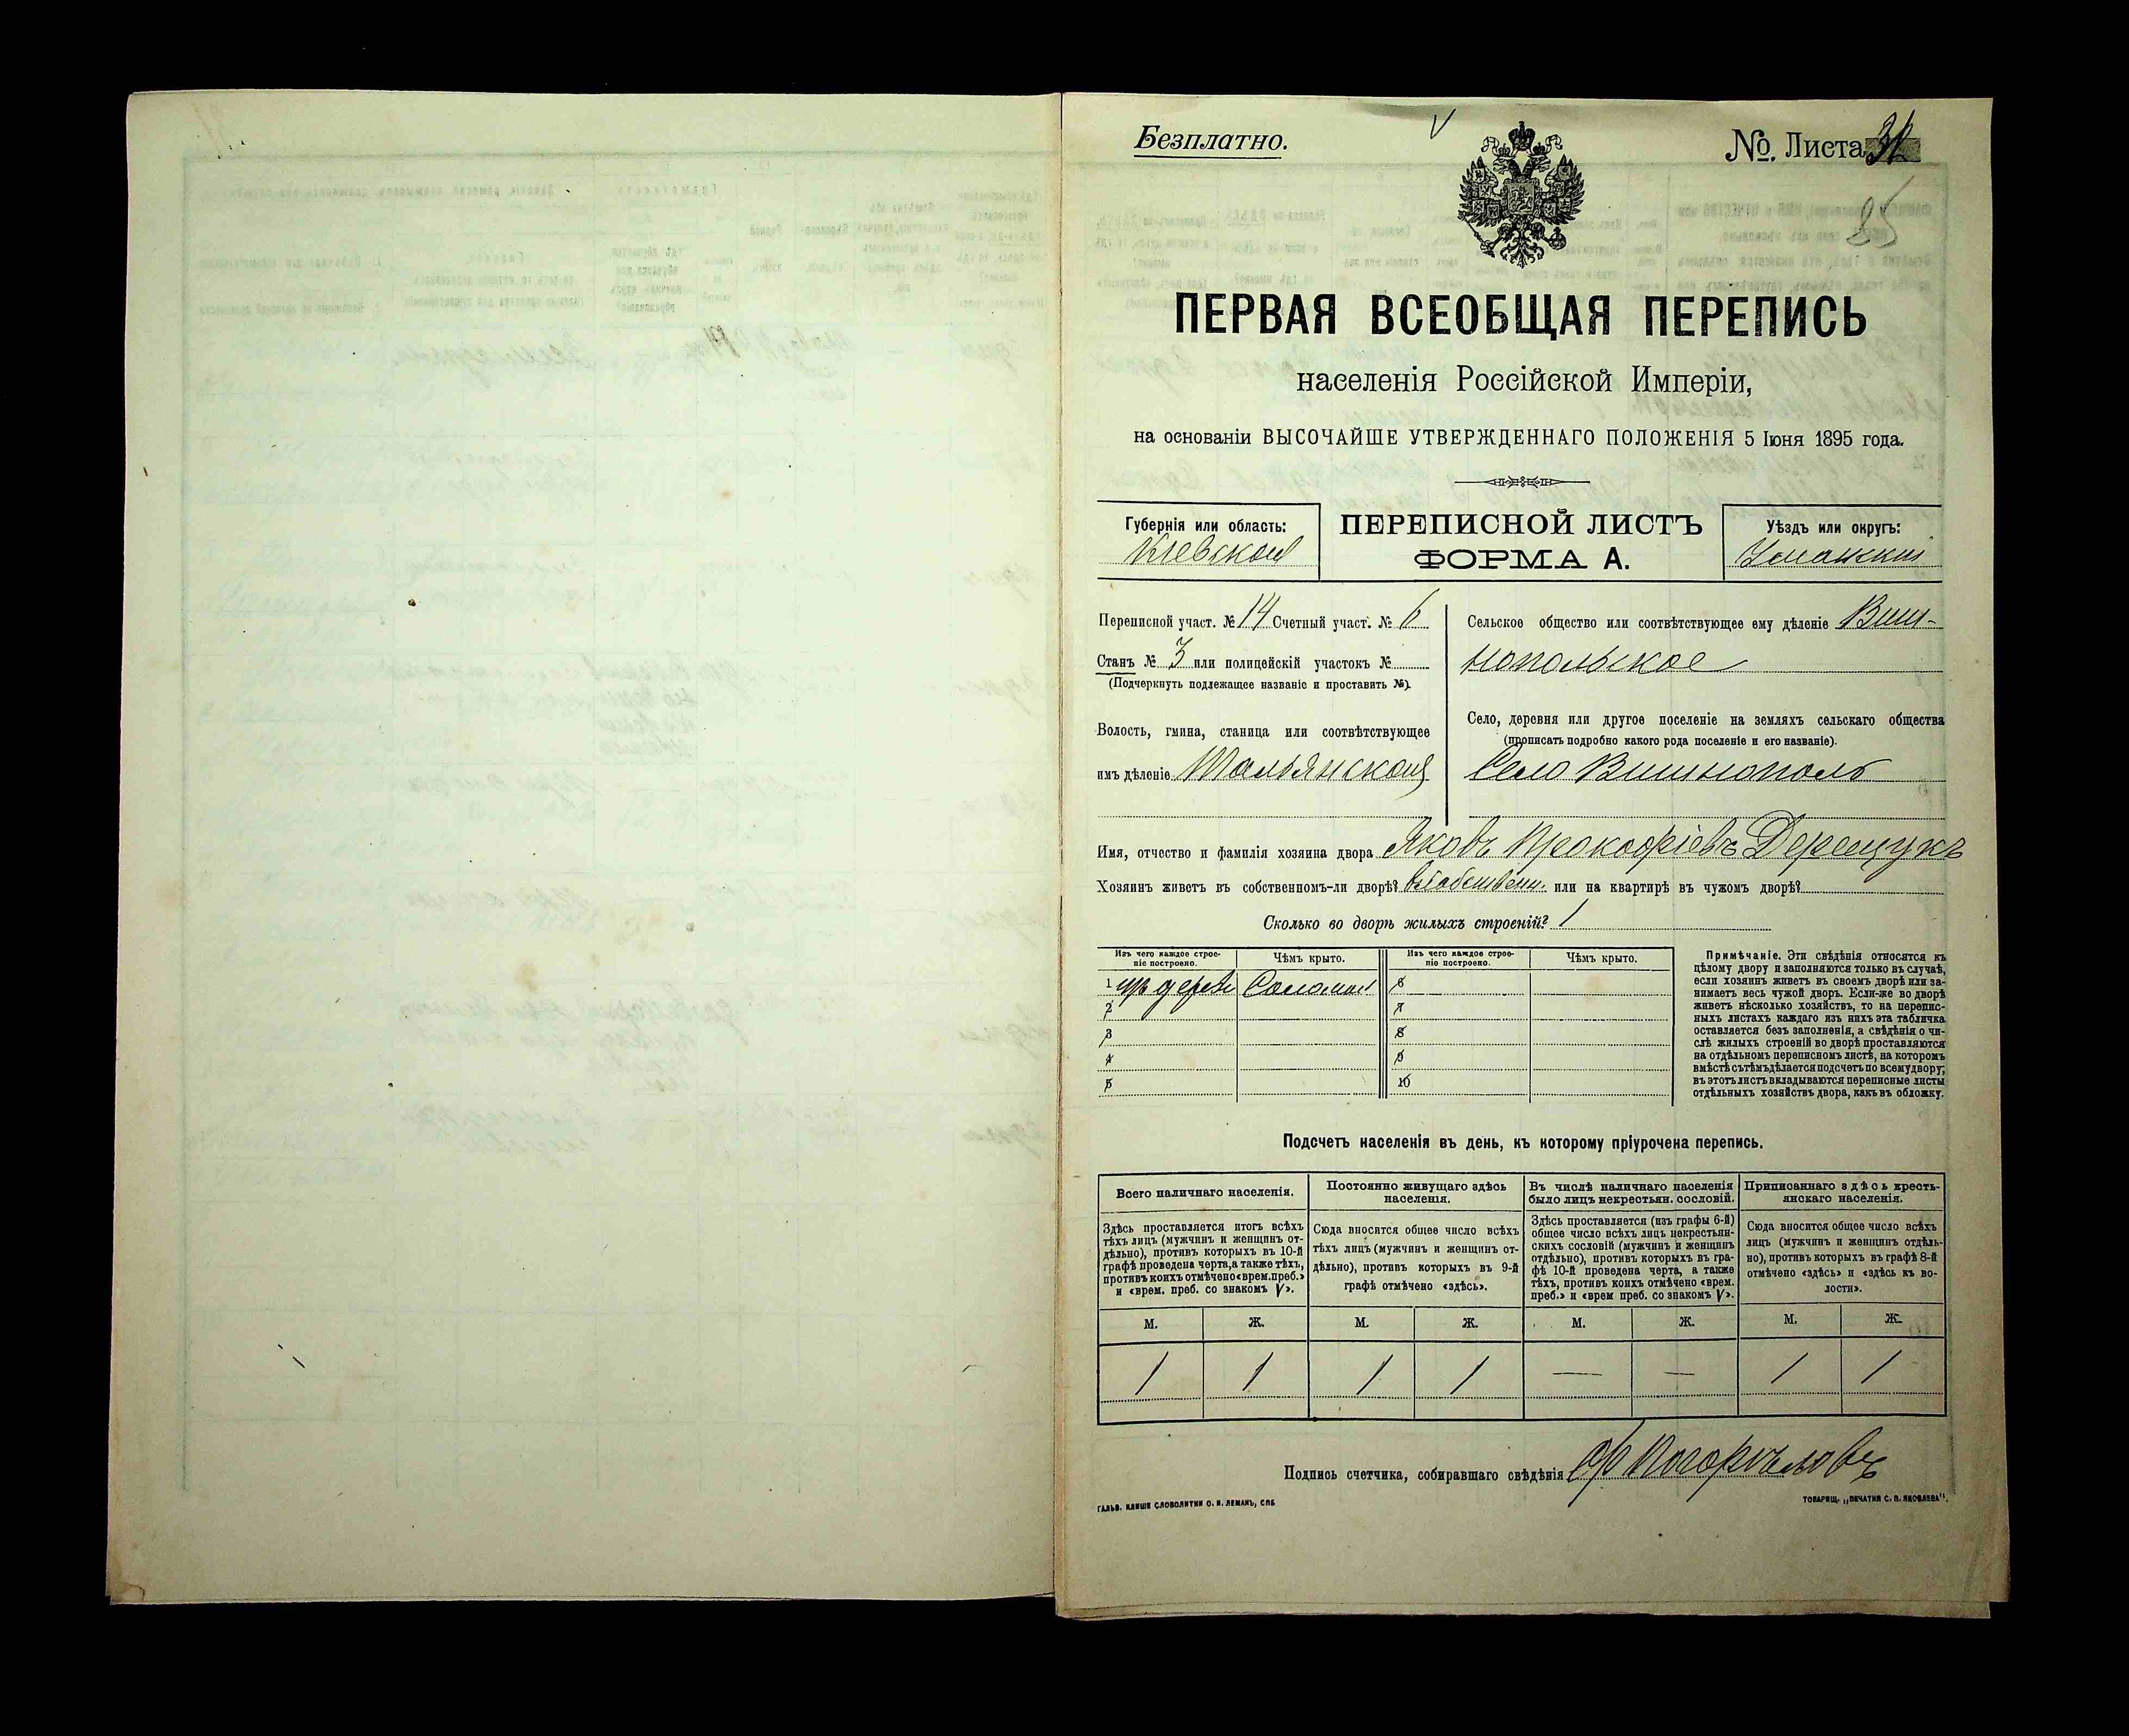 Безплатно.
№. Листа 32
85
ПЕРВАЯ ВСЕОБЩАЯ ПЕРЕПИСЬ
населенія Россійской Имперіи,
на основаніи ВЫСОЧАЙШЕ УТВЕРЖДЕННАГО ПОЛОЖЕНІЯ 5 Іюня 1895 года.
Губернія или область:
Кіевская
ПЕРЕПИСНОЙ ЛИСТЪ
ФОРМА А.
Уѣздъ или округъ:
Уманскій
Переписной участ. № 14 Счетный участ. № 6
Станъ № 3 или полицейскій участокъ №
(Подчеркнуть подлежащее названіе и проставить №).
Волость, гмина, станица или соотвѣтствующее
имъ дѣленіе Тальянская
Сельское общество или соотвѣтствующее ему дѣленіе Виш-
нопольское
Село, деревня или другое поселеніе на земляхъ сельскаго общества
(прописать подробно какого рода поселеніе и его названіе).
Село Вишнополь
Имя, отчество и фамилія хозяина двора Яковъ Прокофіевъ Дерещукъ
Хозяинъ живетъ въ собственномъ-ли дворѣ? въ собственн. или на квартирѣ въ чужомъ дворѣ?
Сколько во дворѣ жилыхъ строеній? 1
Изъ чего каждое строе-
ніе построено.
Чѣмъ крыто.
Изъ чего каждое строе-
ніе построено.
Чѣмъ крыто.
1 изъ дерева Соломой 6
2 7
3 8
4 9
5 10
Примѣчаніе. Эти свѣдѣнія относятся къ
цѣлому двору и заполняются только въ случаѣ,
если хозяинъ живетъ въ своемъ дворѣ или за-
нимаетъ весь чужой дворъ. Если-же во дворѣ
живетъ нѣсколько хозяйствъ, то на перепис-
ныхъ листахъ каждаго изъ нихъ эта табличка
оставляется безъ заполненія, а свѣдѣнія о чи-
слѣ жилыхъ строеній во дворѣ проставляются
на отдѣльномъ переписномъ листѣ, на которомъ
вмѣстѣ съ тѣмъ дѣлается подсчетъ по всему двору;
въ этотъ листъ вкладываются переписные листы
отдѣльныхъ хозяйствъ двора, какъ въ обложку.
Подсчетъ населенія въ день, къ которому пріурочена перепись.
Всего наличнаго населенія.
Здѣсь проставляется итогъ всѣхъ
тѣхъ лицъ (мужчинъ и женщинъ от-
дѣльно), противъ которыхъ въ 10-й
графѣ проведена черта, а также тѣхъ,
противъ коихъ отмѣчено «врем. преб.»
и «врем. преб. со знакомъ V».
Постоянно живущаго здѣсь
населенія.
Сюда вносится общее число всѣхъ
тѣхъ лицъ (мужчинъ и женщинъ от-
дѣльно), противъ которыхъ въ 9-й
графѣ отмѣчено «здѣсь».
Въ числѣ наличнаго населенія
было лицъ некрестьян. сословій.
Здѣсь проставляется (изъ графы 6-й)
общее число всѣхъ лицъ некрестьян-
скихъ сословій (мужчинъ и женщинъ
отдѣльно), противъ которыхъ въ гра-
фѣ 10-й проведена черта, а также
тѣхъ, противъ коихъ отмѣчено «врем.
преб.» и «врем преб. со знакомъ V».
Приписаннаго здѣсь кресть-
янскаго населенія.
Сюда вносится общее число всѣхъ
лицъ (мужчинъ и женщинъ отдѣль-
но), противъ которыхъ въ графѣ 8-й
отмѣчено «здѣсь» и «здѣсь къ во-
лости».
М. Ж. М. Ж. М. Ж. М. Ж.
1 1 1 1 — — 1 1
Подпись счетчика, собиравшаго свѣдѣнія Погорѣловъ
ГАЛЬВ. КЛИШЕ СЛОВОЛИТНИ О. И. ЛЕМАНЪ, СПБ
ТОВАРИЩ. „ПЕЧАТНЯ С. П. ЯКОВЛЕВА".